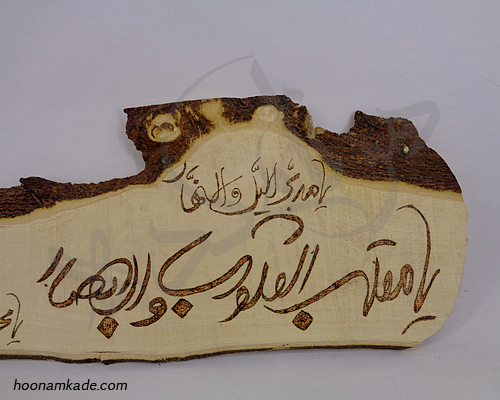 یا مدبر اللیل والنهار
یا مقلب القلوب والابصار
یا
hoonamkade.com